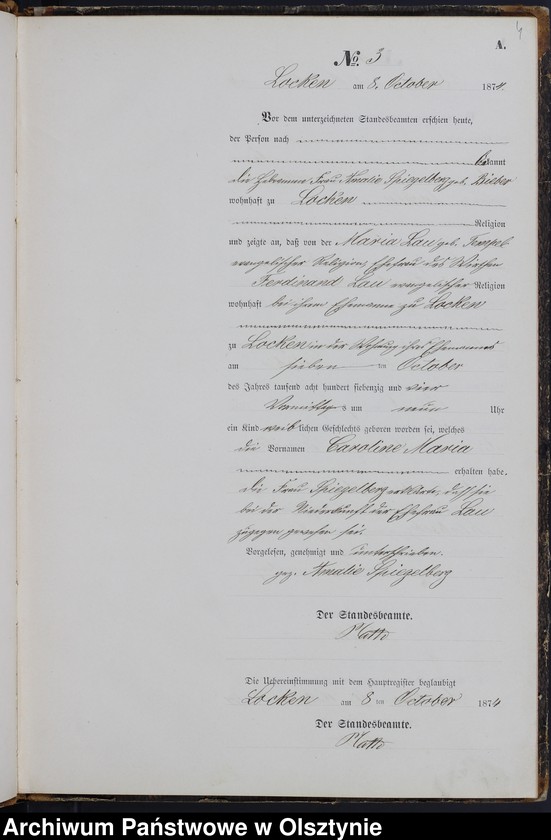 4
A.
No. 3
Locken am 8. October 1874.
Vor dem unterzeichneten Standesbeamten erschien heute,
der Person nach
kannt
die Hebamme Frau Amalie Spiegelberg geb. Bieber
wohnhaft zu Locken
Religion
und zeigte an, daß von der Maria Lau geb. Tempel
evangelischer Religion, Ehefrau des Wirthen
Ferdinand Lau evangelischer Religion
wohnhaft bei ihrem Ehemanne zu Locken
zu Locken in der Wohnung ihres Ehemannes
am sieben ten October
des Jahres tausend acht hundert siebenzig und vier
Vormittags um neun Uhr
ein Kind weiblichen Geschlechts geboren worden sei, welches
die Vornamen Caroline Maria
erhalten habe.
Die Frau Spiegelberg erklärte, daß sie
bei der Niederkunft der Ehefrau Lau
zugegen gewesen sei.
Vorgelesen, genehmigt und unterschrieben.
gez. Amalie Spiegelberg
Der Standesbeamte.
Die Uebereinstimmung mit dem Hauptregister beglaubigt
Locken am 8 ten October 1874
Der Standesbeamte.
Archiwum Państwowe w Olsztynie
/ www.genealogiawarchiwach.pl